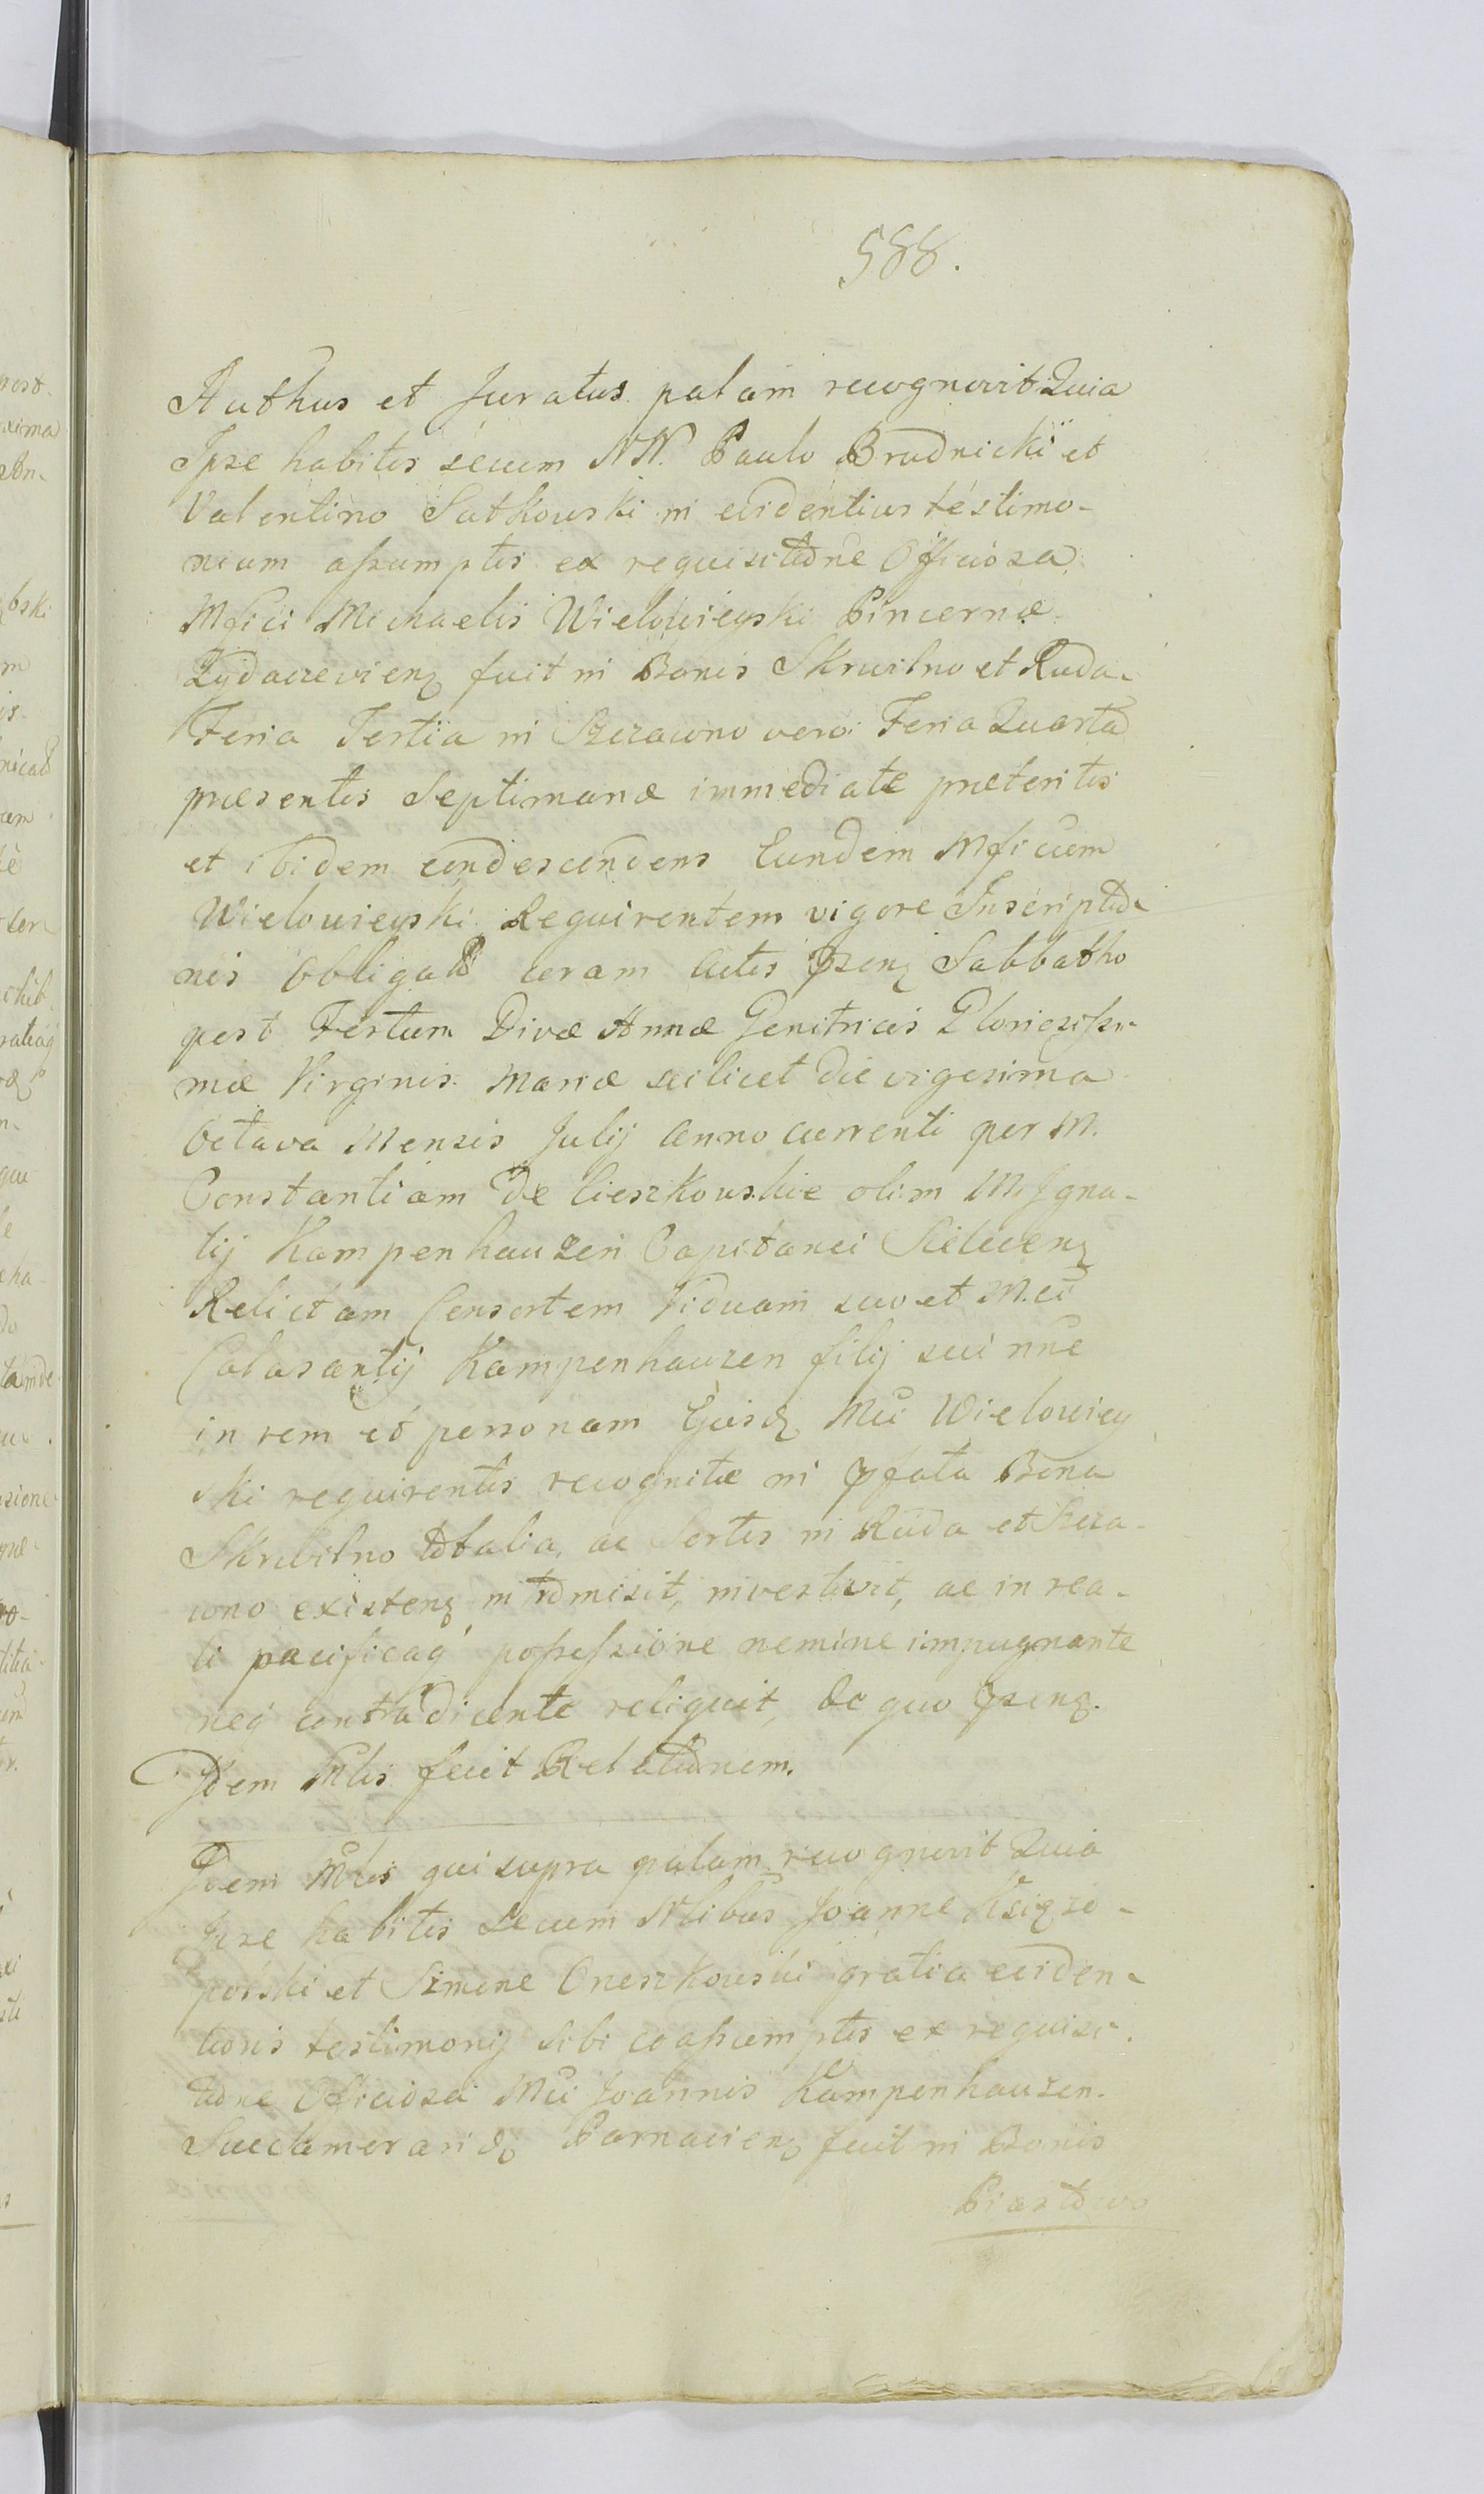 588.
Authus et Juratus palam recognovit Quia
Ipse habitis secum NN. Paulo Brudnicki et
Valentino Sutkowski in evidentius testimo-
nium assumptis ex requisitione Officiosa
Mfici Michaelis Wielowieyski Pincernæ
Zydaczeviens fuit in Bonis Skrwilno et Ruda
Feria Tertia in Szczawno vero Feria Quarta
præsentis Septimanæ immediate præteritis
et ibidem condescendens Eundem Mficum
Wielowieyski Requirentem vigore Inscriptio-
nis Obligat coram Actis Psens Sabbatho
post Festum Divæ Annæ Genitricis Gloriosissi-
mæ Virginis Mariæ scilicet die vigesima
Octava Mensis Julij Anno currenti per M.
Constantiam de Cieszkowskie olim M. Igna-
tij Kampenhauzen Capitanei
Relictam Consortem Viduam suo et M.ci
Calasantij Kampenhauzen filij sui nne
in rem et personam Ejusd Mci Wielowiey
ski requirentis recognitæ in pfata Bona
Skrwilno totalia, ac Sortes in Ruda et Szcza-
wno existens intromisit, investivit, ac in rea-
li pacificaq possessione nemine impugnante
neq contradicente reliquit, de quo psens.
Idem Mlis fecit Relationem.
Idem Mlis qui supra palam recognovit Quia
Ipse habitis secum Nlibus Joanne
et Simone Oneszkowski gratia eviden-
tioris testimonij sibi coassumptis ex requisi-
tione Officiosa Mci Joannis Kampenhauzen
Succamerarid Parnaviens fuit in Bonis
Piastowo